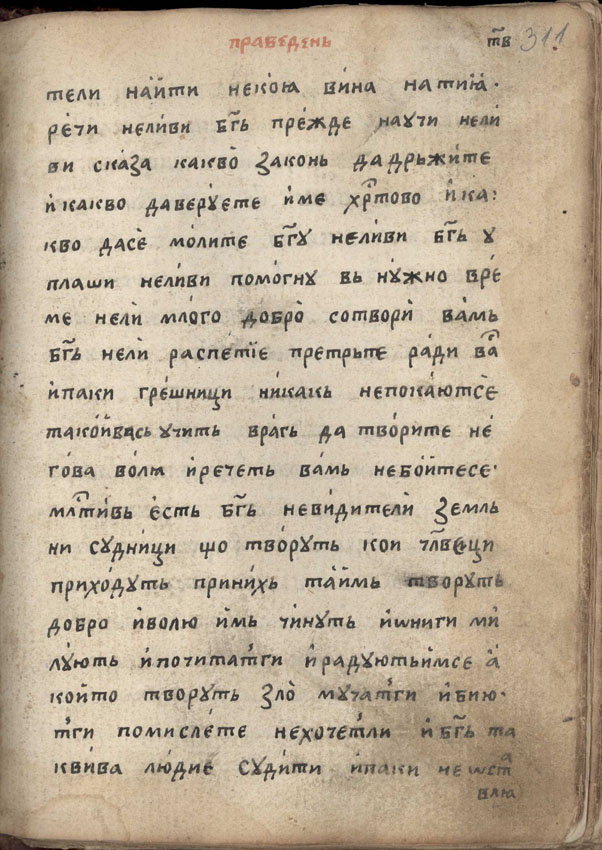 праведень
т҃в 311
тели на́йти не́коꙗ ви́на на тиꙗ̀·
ре́чи не́ли́ви бг҃ь пре́жде научи не́ли
ви сказа какво̀ законь да дрьжи́те
и́ какво да верꙋ́ете и́ме хр҃тово и́ ка·
кво дасѐ мо́лите бг҃ꙋ не́ли́ви бг҃ь ꙋ
плаши не́ли́ви помо́гнꙋ вь нꙋ́жно вре́
ме не́лѝ мло́го добро̀ сотворѝ ва́мь
бг҃ь не́лѝ распе́тїе претрьпе ра́ди ва҃
и́паки гре́шници ни́какь непока́ютсѐ
тако́йвась ꙋчить вра́гь да тво́рите не́
го́ва во́лꙗ и́речеть ва́мь небо́йтесе·
мл҃тивь е́сть бг҃ь неви́дителѝ земль
ни сꙋдни́ци що тво́рꙋть кои чл҃веци
прихо́дꙋть при ни́хь та́ймь творꙋть
добро и́волю и́мь чи́нꙋть и́ѡниги мѝ
лꙋ́ють и́почитатги и́ра́дꙋютьи́мсе а́
ко́йто творꙋть зло̀ мꙋчатги и́бию·
тги помисле́те нехочетли и́ бг҃ь та
кви́ва лю́дие сꙋди́ти и́паки не ѡста
влꙗ